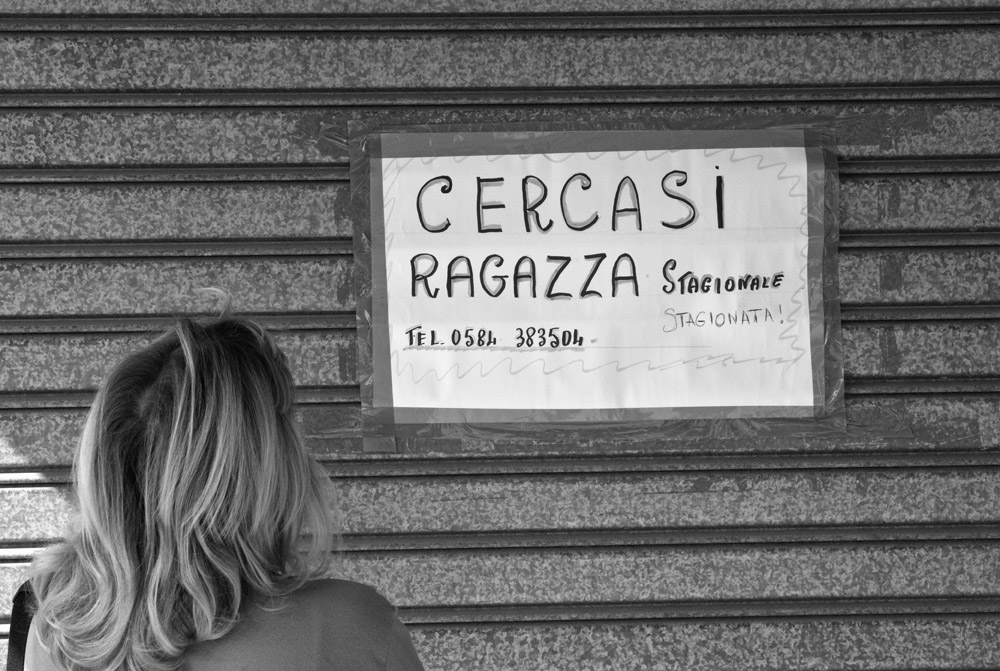 CERCASi
RAGAZZA STAGIONALE
STAGIONATA!
TEL. 0584 383504